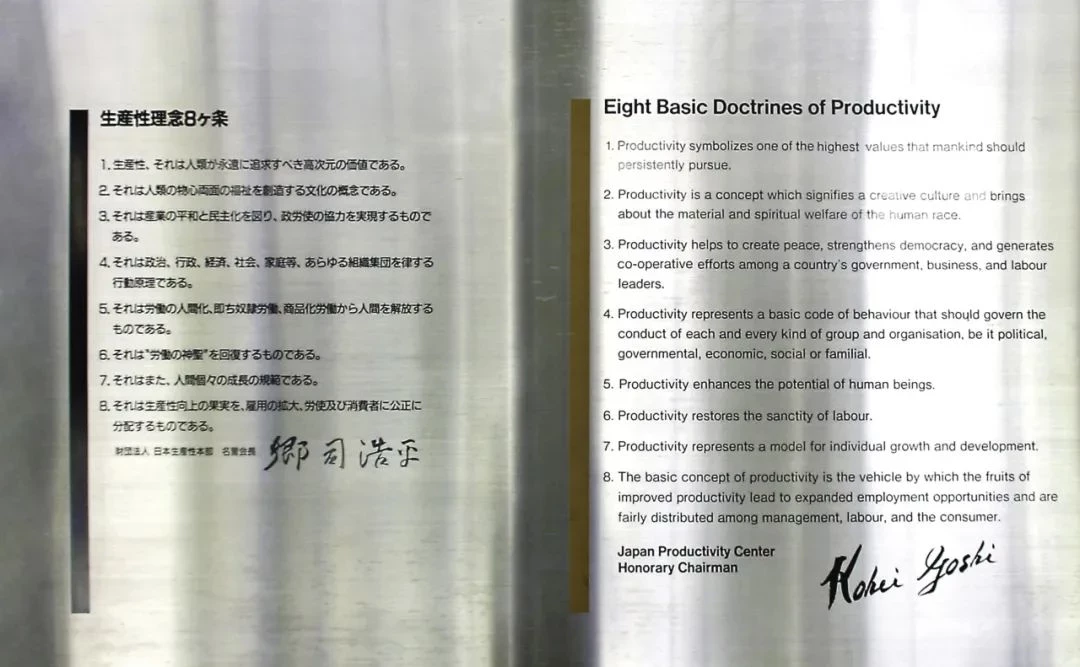 生産性理念8ヶ条
1. 生産性、それは人類が永遠に追求すべき高次元の価値である。
2. それは人類の物心両面の福祉を創造する文化の概念である。
3. それは産業の平和と民主化を図り、政労使の協力を実現するもので
ある。
4. それは政治、行政、経済、社会、家庭等、あらゆる組織集団を律する
行動原理である。
5. それは労働の人間化、即ち奴隷労働、商品化労働から人間を解放する
ものである。
6. それは“労働の神聖”を回復するものである。
7. それはまた、人間個々の成長の規範である。
8. それは生産性向上の果実を、雇用の拡大、労使及び消費者に公正に
分配するものである。
財団法人 日本生産性本部 名誉会長 郷司浩平
Eight Basic Doctrines of Productivity
1. Productivity symbolizes one of the highest values that mankind should
persistently pursue.
2. Productivity is a concept which signifies a creative culture and brings
about the material and spiritual welfare of the human race.
3. Productivity helps to create peace, strengthens democracy, and generates
co-operative efforts among a country's government, business, and labour
leaders.
4. Productivity represents a basic code of behaviour that should govern the
conduct of each and every kind of group and organisation, be it political,
governmental, economic, social or familial.
5. Productivity enhances the potential of human beings.
6. Productivity restores the sanctity of labour.
7. Productivity represents a model for individual growth and development.
8. The basic concept of productivity is the vehicle by which the fruits of
improved productivity lead to expanded employment opportunities and are
fairly distributed among management, labour, and the consumer.
Japan Productivity Center
Honorary Chairman
Kohei Goshi